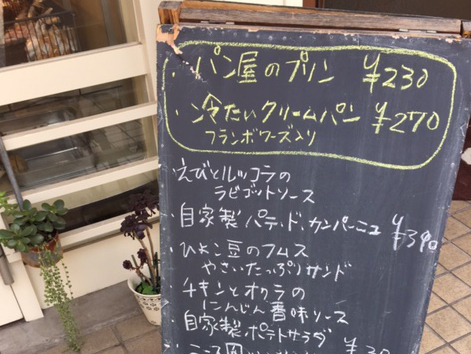 ・パン屋のプリン ¥230
・冷たいクリームパン ¥270
フランボワーズ入り
えびとルッコラの
ラビゴットソース
・自家製 パテ・ド・カンパーニュ ¥390
・ひよこ豆のフムス
やさいたっぷりサンド
・チキンとオクラの
にんじん香味ソース
自家製ポテトサラダ